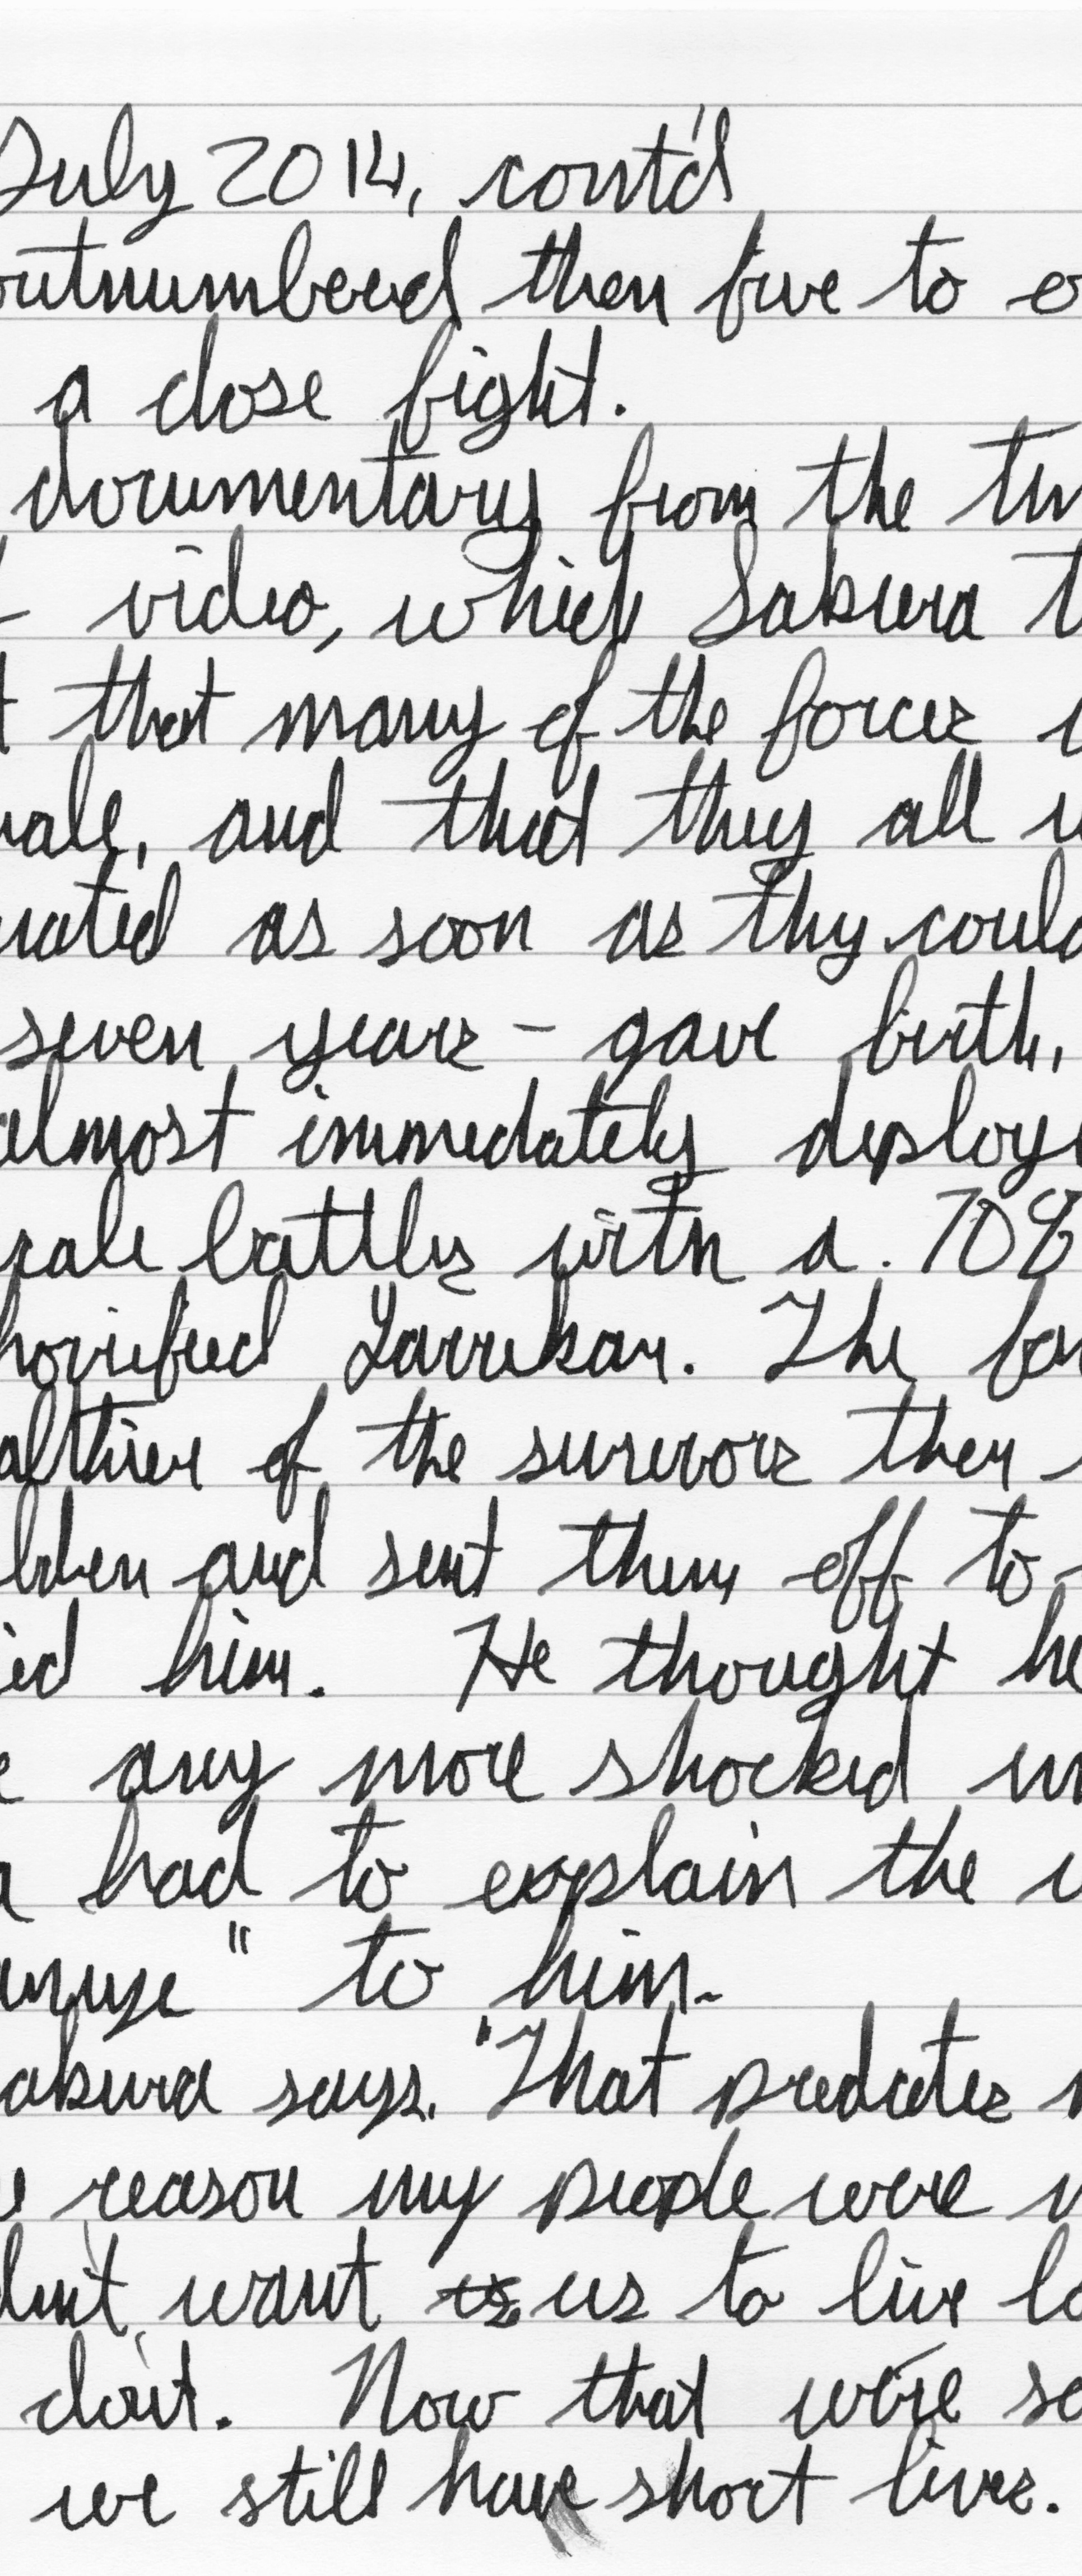 July 2014, cont'd
outnumbered then five to
a close fight.
documentary from the
video, which Sakura
that many of the forces
and that they all
as soon as they could
seven years - gave birth,
almost immediately
battles with a .708
horrified Yarrikar. The
of the survivors then
and sent them off to
him. He thought he
any more shocked
had to explain the
" to him.
says. "That predates
reason my people were
want us to live
don't. Now that we're
we still have short lives.